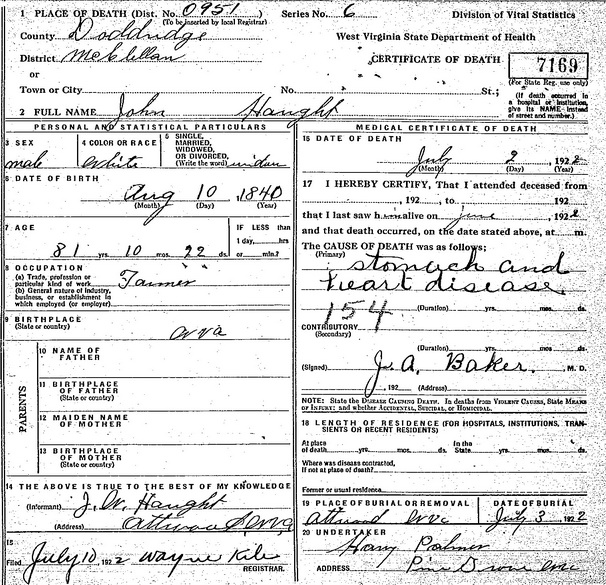 1 PLACE OF DEATH (Dist. No. 0951)
(To be inserted by local Registrar)
Series No. 6
Division of Vital Statistics
County Doddridge
West Virginia State Department of Health
District McClellan
CERTIFICATE OF DEATH
7169
(For State Reg. use only)
or
Town or City No. St.;
(If death occurred in a hospital or institution, give its NAME instead of street and number.)
2 FULL NAME John Haught
PERSONAL AND STATISTICAL PARTICULARS
3 SEX
male
4 COLOR OR RACE
white
5 SINGLE, MARRIED, WIDOWED, OR DIVORCED,
(Write the word)
6 DATE OF BIRTH
Aug 10, 1840
(Month) (Day) (Year)
7 AGE
81 yrs. 10 mos. 22 ds.
IF LESS than
1 day, hrs
or min.?
8 OCCUPATION
(a) Trade, profession or
particular kind of work Farmer
(b) General nature of industry,
business, or establishment in
which employed (or employer)
9 BIRTHPLACE
(State or country)
wva
PARENTS
10 NAME OF
FATHER
11 BIRTHPLACE
OF FATHER
(State or country)
12 MAIDEN NAME
OF MOTHER
13 BIRTHPLACE
OF MOTHER
(State or country)
14 THE ABOVE IS TRUE TO THE BEST OF MY KNOWLEDGE
(Informant) Haught
(Address)
15
Filed July 10, 1922 Wayne Kile
REGISTRAR.
MEDICAL CERTIFICATE OF DEATH
15 DATE OF DEATH
July 2, 1922
(Month) (Day) (Year)
17 I HEREBY CERTIFY, That I attended deceased from
, 192 , to , 192
that I last saw h alive on June 1922
and that death occurred, on the date stated above, at m.
The CAUSE OF DEATH was as follows:
(Primary)
stomach and
heart disease
154
(Duration) yrs. mos. ds.
CONTRIBUTORY
(Secondary)
(Duration) yrs. mos. ds.
(Signed) J. A. Baker, M. D.
, 192 (Address)
NOTE: State the DISEASE CAUSING DEATH. In deaths from VIOLENT CAUSES, State MEANS
OF INJURY; and whether ACCIDENTAL, SUICIDAL, or HOMICIDAL.
18 LENGTH OF RESIDENCE (FOR HOSPITALS, INSTITUTIONS, TRAN-
SIENTS OR RECENT RESIDENTS)
At place
of death yrs. mos. ds.
In the
State yrs. mos. ds.
Where was disease contracted,
if not at place of death?
Former or usual residence
19 PLACE OF BURIAL OR REMOVAL
DATE OF BURIAL
July 3 1922
20 UNDERTAKER
Harry Palmer
ADDRESS Pine Grove wva